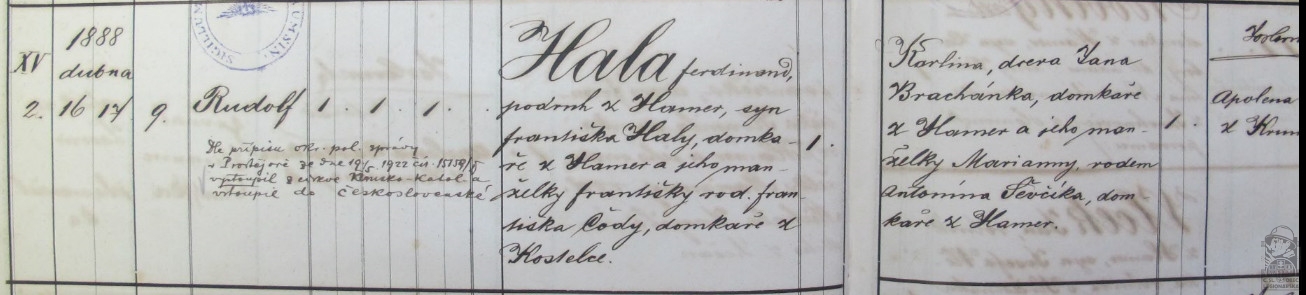 SIGILLUM
UMSIN.
XV
1888
dubna
2. 16 17. 9. Rudolf 1. 1. 1.
Dle přípisu okr. pol. správy
v Prostějově ze dne 19/5 1922 čís. 15159/5
vystoupil z církve Římsko-Katol a
vstoupil do československé
Hala ferdinand,
podruh z Hamer, syn
františka Haly, domka-
ře z Hamer a jeho man-
želky františky rod. fran-
tiska Čody, domkaře z
Kostelce.
1.
Karlina, dcera Jana
Brachánka, domkáře
z Hamer a jeho man-
želky Marianny, rodem
Antonína Ševčíka, dom-
káře z Hamer.
1.
Apolena
z Krum